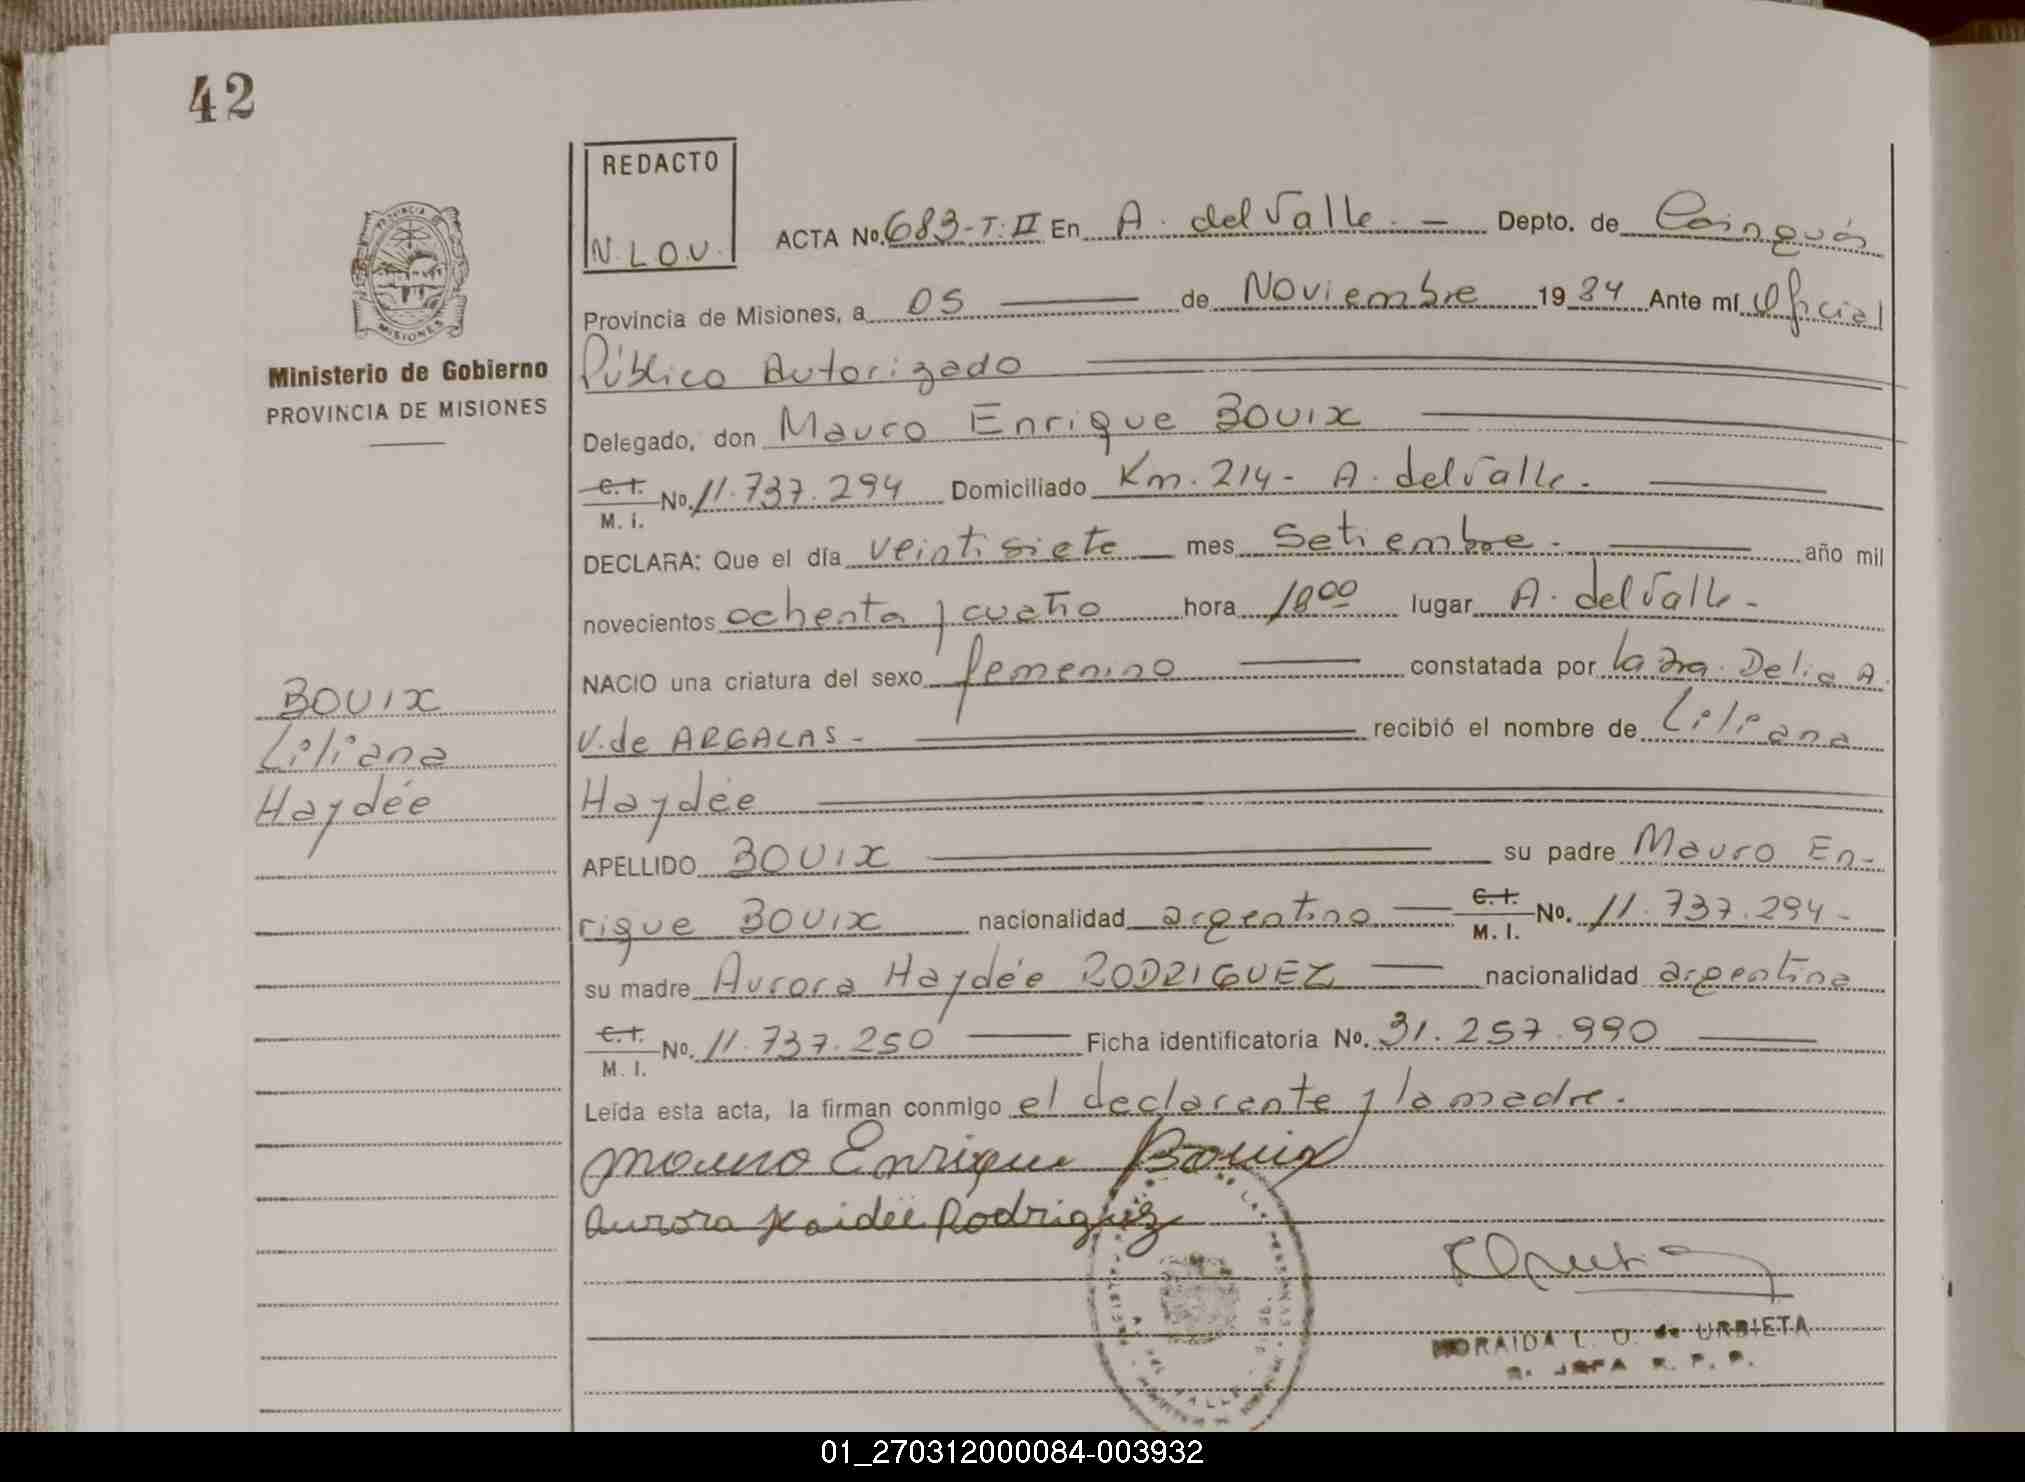 42
REDACTO
N.L.O.U.
PROVINCIA DE
MISIONES
Ministerio de Gobierno
PROVINCIA DE MISIONES
BOUIX
Liliana
Haydée
ACTA No. 683-T:II En A. del Valle. — Depto. de Cainguás
Provincia de Misiones, a 05 — de Noviembre 1984 Ante mí Oficial
Público Autorizado
Delegado, don Mauro Enrique BOUIX
C.I. M.I. No. 11.737.294 Domiciliado Km. 214 - A. del Valle. —
DECLARA: Que el día veintisiete — mes Setiembre. — año mil
novecientos ochenta y cuatro hora 18 00 lugar A. del Valle -
NACIO una criatura del sexo femenino — constatada por la Sra. Delia A.
V. de ARGALAS - — recibió el nombre de Liliana
Haydée —
APELLIDO BOUIX — su padre Mauro En-
rique BOUIX nacionalidad argentino — C.I. M.I. No. 11.737.294 -
su madre Aurora Haydée RODRIGUEZ — nacionalidad argentina
C.I. M.I. No. 11.737.250 — Ficha identificatoria No. 31.257.990 —
Leída esta acta, la firman conmigo el declarante y la madre.
Mauro Enrique Bouix
Aurora Haideé Rodriguez
MORAIDA L. O. de URBIETA
JEFA R. P. P.
01_270312000084-003932